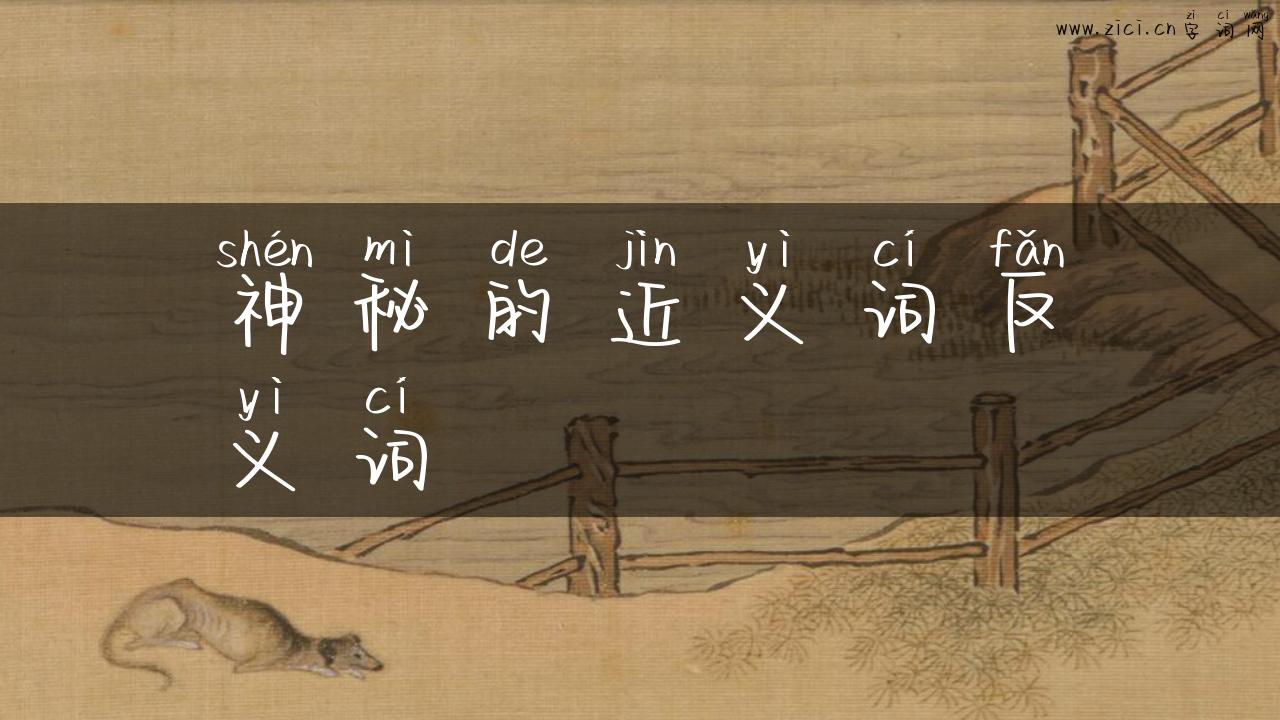 zi ci wang
www.zici.cn 字词网
shén mì de jìn yì cí fǎn
神秘的近义词反
yì cí
义词